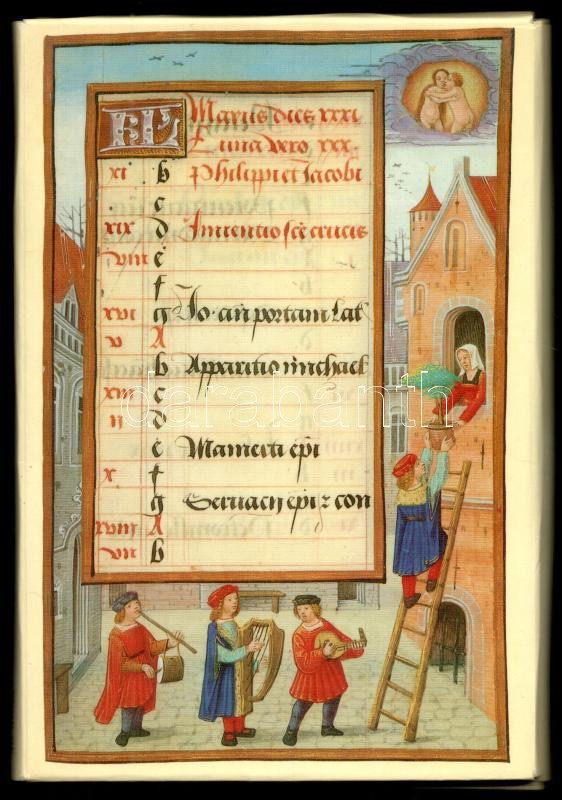 KL Maius dies xxxi
luna vero xxx.
xi b Philippi et Jacobi
c
xix d Inventio scē crucis
viii e
f
xvi g Jo· an̄ portam Lat
v A
b Apparitio michael
xiii c
ii d
e Mamerti ep̄i
x f
g Servacij ep̄i ⁊ con
xviii A
vii b
darabanth